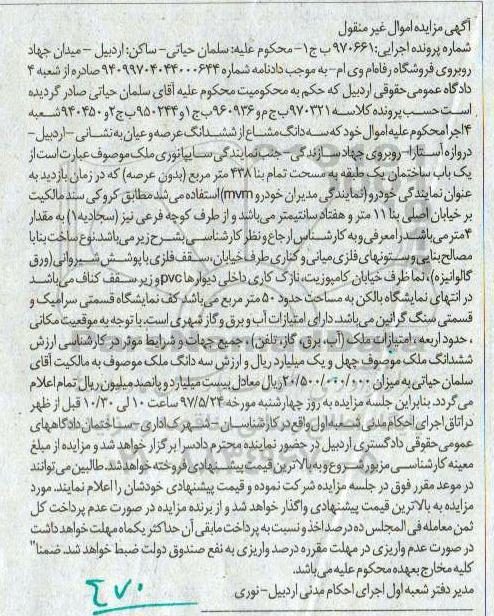 آگهی مزایده اموال غیر منقول
شماره پرونده اجرایی: ۹۷۰۶۶۱ ب ج ۱- محکوم علیه: سلمان حیاتی- ساکن: اردبیل - میدان جهاد
روبروی فروشگاه رفاه ام وی ام- به موجب دادنامه شماره ۹۴۰۹۹۷۰۴۰۴۴۰۰۰۶۴۴ صادره از شعبه ۴
دادگاه عمومی حقوقی اردبیل که حکم به محکومیت محکوم علیه آقای سلمان حیاتی صادر گردیده
است حسب پرونده کلاسه ۹۷۰۳۲۱ ب ج م و ۹۶۰۹۳۶ ب ج ۱ و ۹۵۰۲۴۴ ب ج ۲ و ۹۴۰۴۵۰ شعبه
۴ اجرا محکوم علیه اموال خود که سه دانگ مشاع از ششدانگ عرصه و عیان به نشانی - اردبیل-
دروازه آستارا- روبروی جهاد سازندگی- جنب نمایندگی سایپا نوری ملک موصوف عبارت است از
یک باب ساختمان یک طبقه به مساحت تمام بنا ۴۳۸ متر مربع (بدون عرصه) که در زمان بازدید به
عنوان نمایندگی خودرو (نمایندگی مدیران خودرو mvm) استفاده می شد مطابق کروکی سند مالکیت
بر خیابان اصلی بنا ۱۱ متر و هفتاد سانتیمتر می باشد و از طرف کوچه فرعی نیز (سجادیه۱) به مقدار
۴ متر می باشد در امعرفی و به کارشناس ارجاع و نظر کارشناسی بشرح زیر می باشد. نوع ساخت بنا با
مصالح بنایی و ستونهای فلزی میانی و کناری طرف خیابان، سقف فلزی با پوشش شیروانی (ورق
گالوانیزه)، نما طرف خیابان کامپوزیت، نازک کاری داخلی دیوارها pvc و زیر سقف کناف می باشد
در انتهای نمایشگاه بالکن به مساحت حدود ۵۰ متر مربع می باشد کف نمایشگاه قسمتی سرامیک و
قسمتی سنگ گرانین می باشد. دارای امتیازات آب و برق و گاز شهری است. با توجه به موقعیت مکانی
، حدود اربعه، امتیازات ملک (آب، برق، گاز، تلفن)، جمیع جهات و شرایط موثر در کارشناسی ارزش
ششدانگ ملک موصوف چهل و یک میلیارد ریال و ارزش سه دانگ ملک موصوف به مالکیت آقای
سلمان حیاتی به میزان ۲۰/۵۰۰/۰۰۰/۰۰۰ ریال معادل بیست میلیارد و پانصد میلیون ریال تمام اعلام
می گردد. بنابر این جلسه مزایده به روز چهارشنبه مورخه ۹۷/۵/۲۴ ساعت ۱۰ الی ۱۰/۳۰ قبل از ظهر
در اتاق اجرای احکام مدنی شعبه اول واقع در کارشناسان- شهرک اداری- ساختمان دادگاههای
عمومی حقوقی دادگستری اردبیل در حضور نماینده محترم دادسرا برگزار خواهد شد و مزایده از مبلغ
معینه کارشناسی مزبور شروع و به بالاترین قیمت پیشنهادی فروخته خواهد شد. طالبین می توانند
در موعد مقرر فوق در جلسه مزایده شرکت نموده و قیمت پیشنهادی خودشان را اعلام نمایند. مورد
مزایده به بالاترین قیمت پیشنهادی واگذار خواهد شد و از برنده مزایده در صورت عدم پرداخت کل
ثمن معامله فی المجلس ده درصد اخذ و نسبت به پرداخت مابقی آن حداکثر یکماه مهلت خواهد داشت
در صورت عدم واریزی در مهلت مقرره درصد واریزی به نفع صندوق دولت ضبط خواهد شد. ضمنا"
کلیه مخارج بعهده محکوم علیه می باشد.
مدیر دفتر شعبه اول اجرای احکام مدنی اردبیل- نوری
۴۷۰